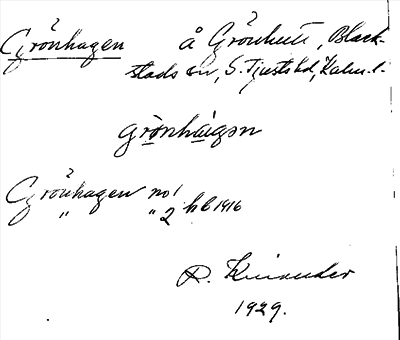 Grönhagen å Grönhult, Black-
stads sn, S. Tjusts hd, Kalm. l.
grònhàigən
Grönhagen no 1
" " 2 hl 1916
R. Kinander
1929.